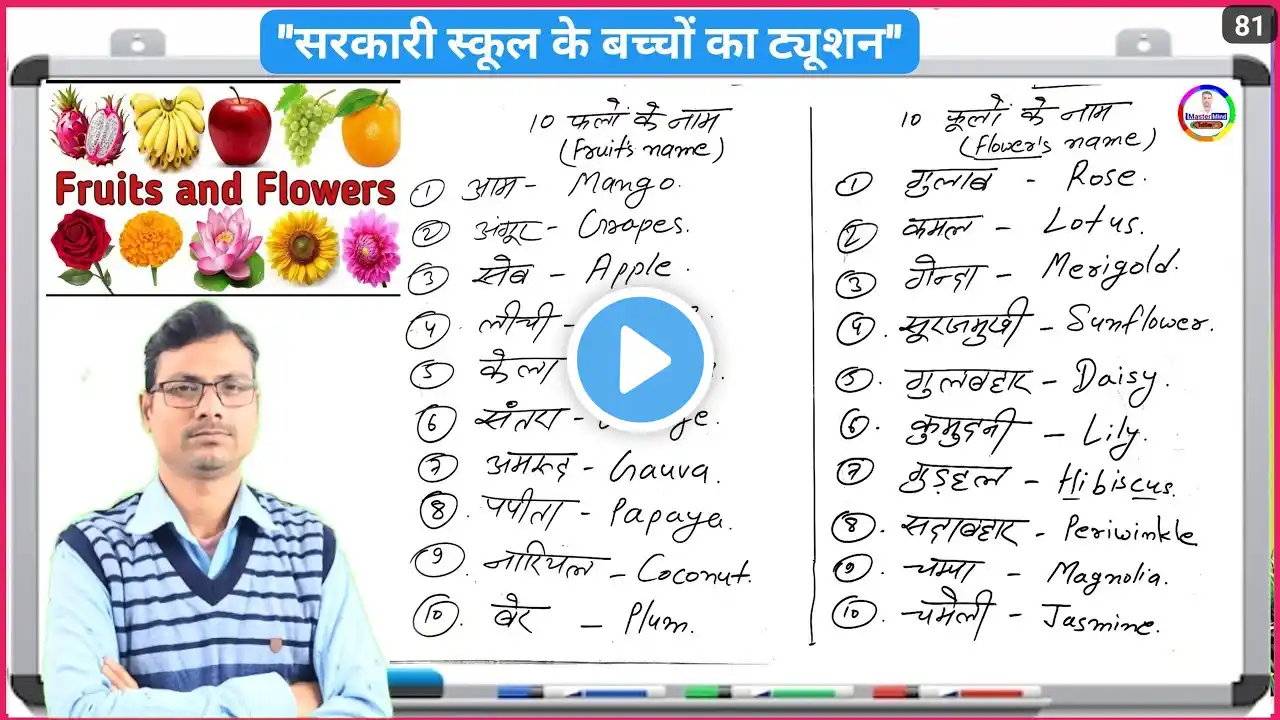 "सरकारी स्कूल के बच्चों का ट्यूशन"
81
Fruits and Flowers
10 फलों के नाम
(Fruit's name)
① आम - Mango.
② अंगूर - Grapes.
③ सेब - Apple.
④. लीची -
⑤ केला
⑥ संतरा -
⑦ अमरूद - Gauva.
⑧. पपीता - Papaya.
⑨ नारियल - Coconut.
⑩. बेर - Plum.
10 फूलों के नाम
(Flower's name)
① गुलाब - Rose.
② कमल - Lotus.
③ गेन्दा - Merigold.
④. सूरजमुखी - Sunflower.
⑤. गुलबहार - Daisy.
⑥. कुमुदनी - Lily.
⑦ गुड़हल - Hibiscus.
⑧. सदाबहार - Periwinkle
⑨. चम्पा - Magnolia.
⑩. चमेली - Jasmine.
MasterMind